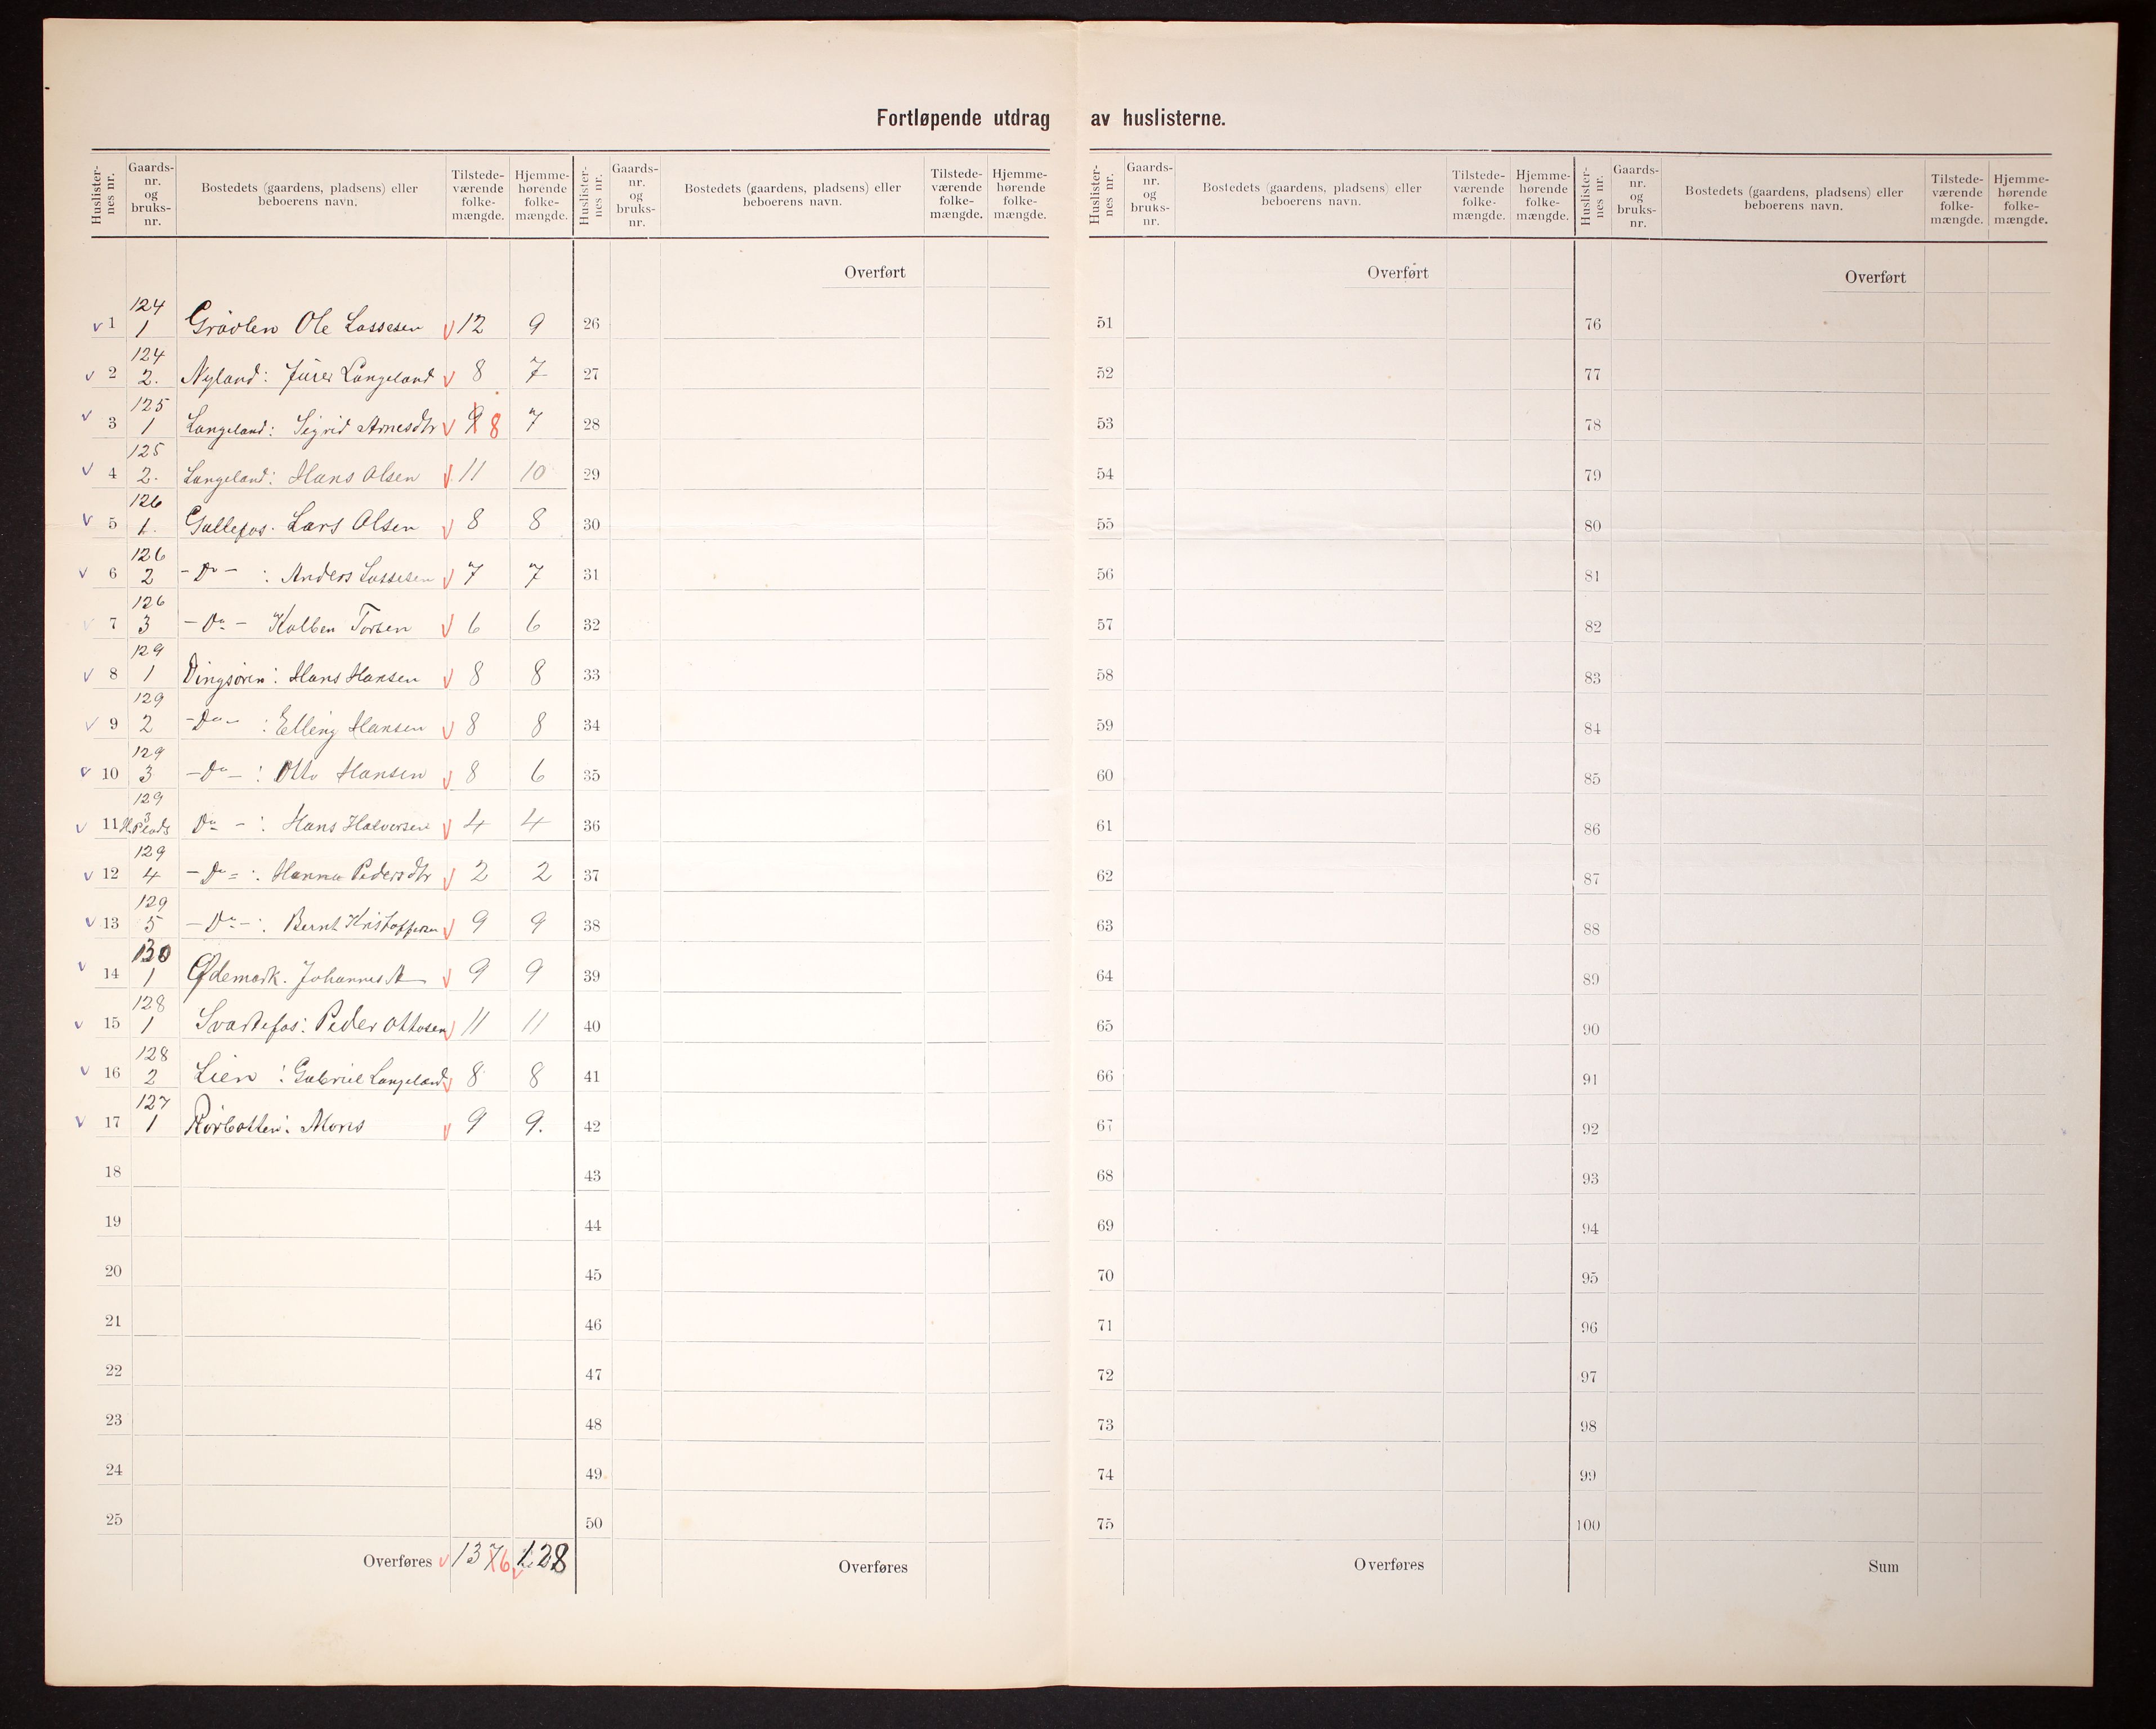 Fortløpende utdrag av huslisterne.
Huslister-nes nr. Gaards-nr. og bruks-nr. Bostedets (gaardens, pladsens) eller beboerens navn. Tilstede-værende folke-mængde. Hjemme-hørende folke-mængde.
Huslister-nes nr. Gaards-nr. og bruks-nr. Bostedets (gaardens, pladsens) eller beboerens navn. Tilstede-værende folke-mængde. Hjemme-hørende folke-mængde.
Huslister-nes nr. Gaards-nr. og bruks-nr. Bostedets (gaardens, pladsens) eller beboerens navn. Tilstede-værende folke-mængde. Hjemme-hørende folke-mængde.
Huslister-nes nr. Gaards-nr. og bruks-nr. Bostedets (gaardens, pladsens) eller beboerens navn. Tilstede-værende folke-mængde. Hjemme-hørende folke-mængde.
v 1 124 1 Grävlen Ole Lassesen v 12 9
v 2 124 2. Nyland: Langeland v 8 7
v 3 125 1 Langeland: Sigrid Arnesdtr v 9 8 7
v 4 125 2. Langeland: Hans Olsen v 11 10
v 5 126 1. Gullefos. Lars Olsen v 8 8
v 6 126 2 - Do - : Anders Lassesen v 7 7
v 7 126 3 - Do - Kolben Torsen v 6 6
v 8 129 1 Dingsøren: Hans Hansen v 8 8
v 9 129 2 - Do - : Elling Hansen v 8 8
v 10 129 3 - Do - : Otto Hansen v 8 6
v 11 129 3 H.Plads Do - : Hans Halvorsen v 4 4
v 12 129 4 - Do - : Hanna Pedersdtr v 2 2
v 13 129 5 - Do - : Bernt Kristoffersen v 9 9
v 14 130 1 Ødemark. Johannes A v 9 9
v 15 128 1 Svartefos: Peder Ottosen v 11 11
v 16 128 2 Lien : Gabriel Langeland v 8 8
v 17 127 1 Rörbotten: v 9 9.
18
19
20
21
22
23
24
25
Overføres v 137 6 v 128
Overført
26
27
28
29
30
31
32
33
34
35
36
37
38
39
40
41
42
43
44
45
46
47
48
49
50
Overføres
Overført
51
52
53
54
55
56
57
58
59
60
61
62
63
64
65
66
67
68
69
70
71
72
73
74
75
Overføres
Overført
76
77
78
79
80
81
82
83
84
85
86
87
88
89
90
91
92
93
94
95
96
97
98
99
100
Sum